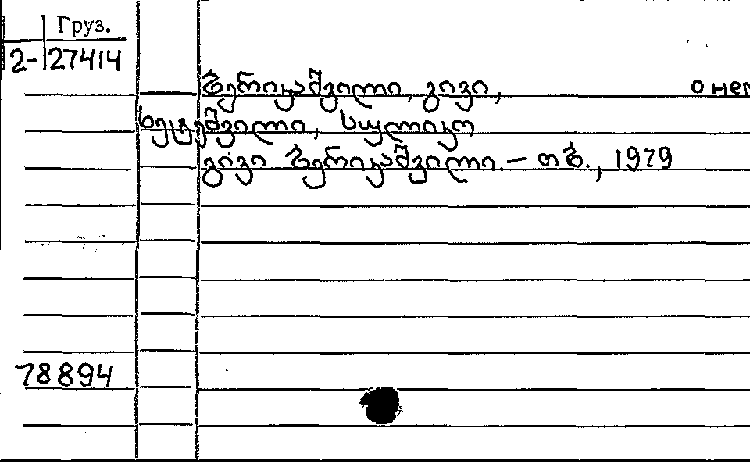 Груз.
2-27414
ბერიკაშვილი, გივი, о нем
ხეტეშვილი, სულიკო
გივი ბერიკაშვილი. – თბ., 1979
78894